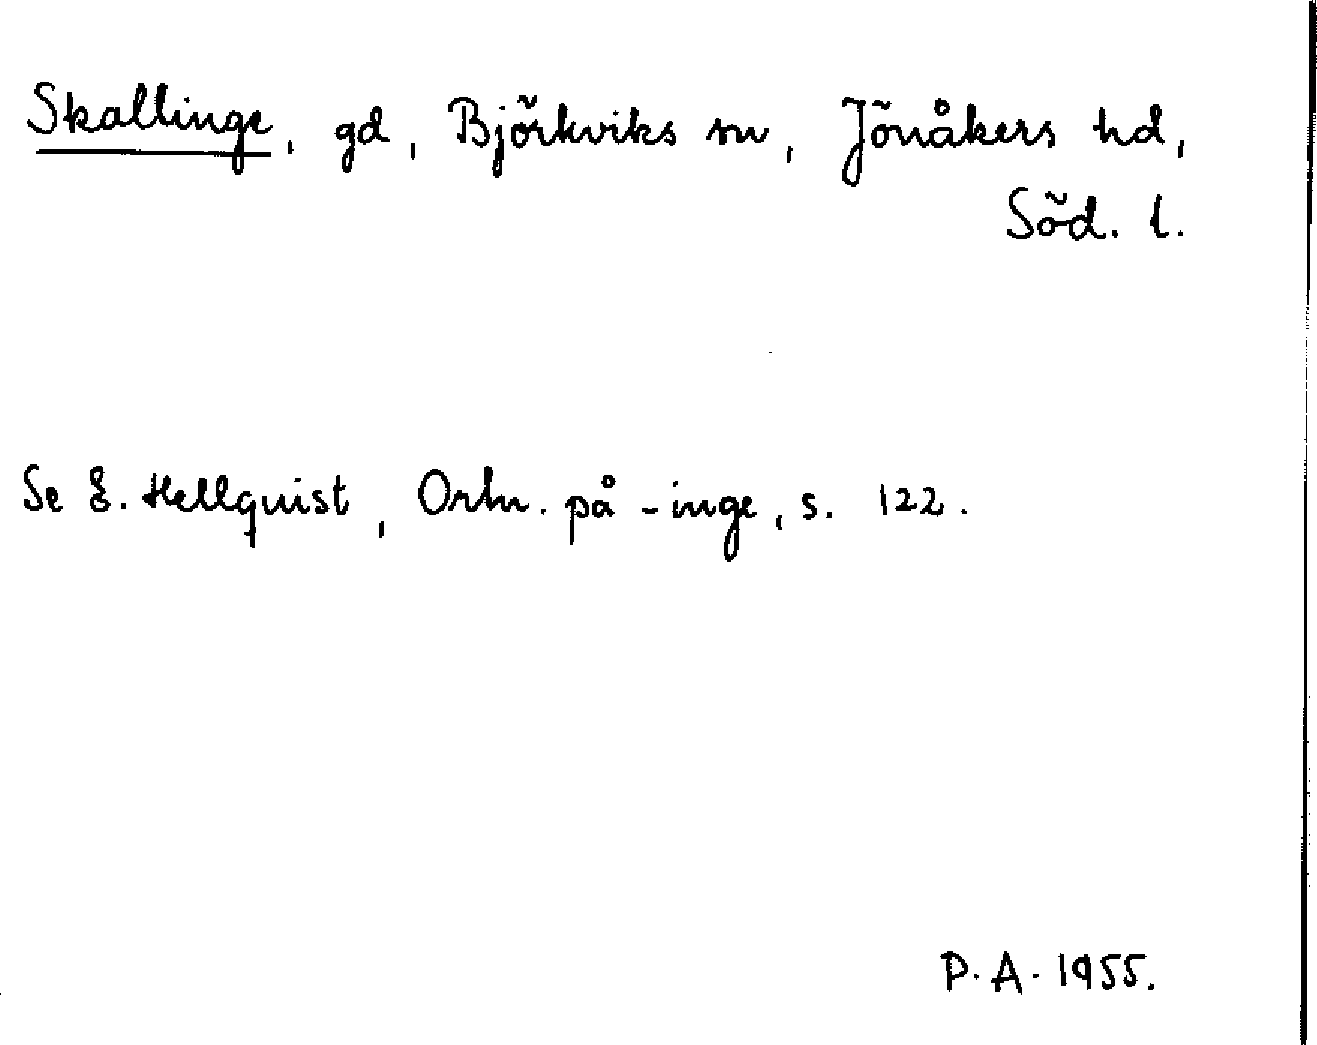 Skallinge, gd, Björkviks sn, Jönåkers hd,
Söd. l.
Se E. Hellquist, Ortn. på -inge, s. 122.
P.A. 1955.